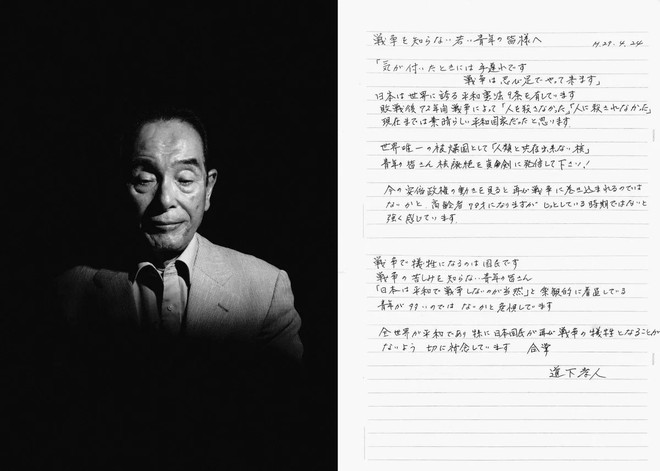 戦争を知らない若い青年の皆様へ
H.29.4.24
「気が付いたときには手遅れです
戦争は忍び足でやって来ます」
日本は世界に誇る平和憲法9条を有しています
敗戦後72年間戦争によって「人を殺さなかった」「人に殺されなかった」
現在までは素晴らしい平和国家だったと思います
世界唯一の被爆国として「人類と共存出来ない核」
青年の皆さん核廃絶を真剣に発信して下さい!
今の安倍政権の動きを見ると再び戦争に巻き込まれるのでは
ないかと、高齢者 になりますがじっとしている時期ではないと
強く感じています
戦争で犠牲になるのは国民です
戦争の苦しみを知らない青年の皆さん
「日本は平和で戦争しないのが当然」と楽観的に看過している
青年が多いのではないかと危惧しています
全世界が平和であり特に日本国民が再び戦争の犠牲となることが
ないよう 切に祈念しています 合掌
道下孝人